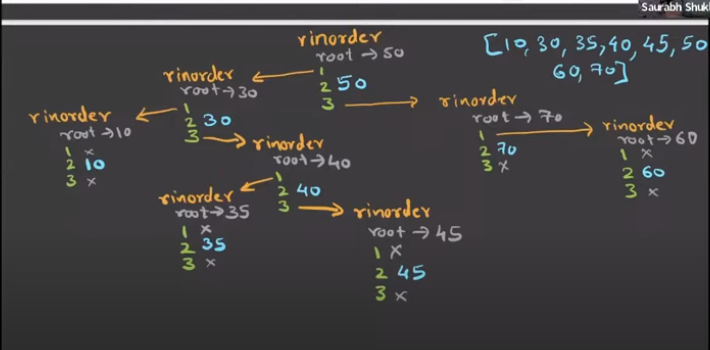 Saurabh Shukl
rinorder
root → 50
1
2 50
3
[10, 30, 35, 40, 45, 50
60, 70]
rinorder
root → 30
1
2 30
3
rinorder
root → 10
1 x
2 10
3 x
rinorder
root → 40
1
2 40
3
rinorder
root → 35
1 x
2 35
3 x
rinorder
root → 45
1 x
2 45
3 x
rinorder
root → 70
1
2 70
3 x
rinorder
root → 60
1 x
2 60
3 x